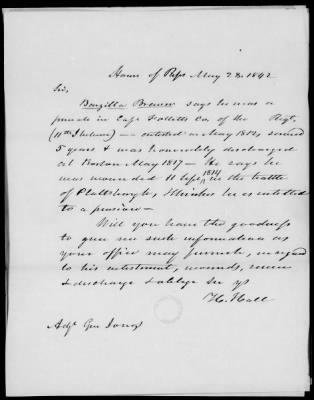 House of Reps May 28 1842
Sir,
Barzilla Brewer says he was a
private in Capt Folletts Co. of the Regt.
(11th I believe) — enlisted in May 1812, served
5 years & was honorably discharged
at Boston May 1817 — He says he
was wounded 11 Sept 1814 in the battle
of Plattsburgh, thinks he is entitled
to a pension —
Will you have the goodness
to give me such information as
your office may furnish, in regard
to his enlistment, wounds, service
& discharge & oblige
H. Hall
Adjt Gen Jones